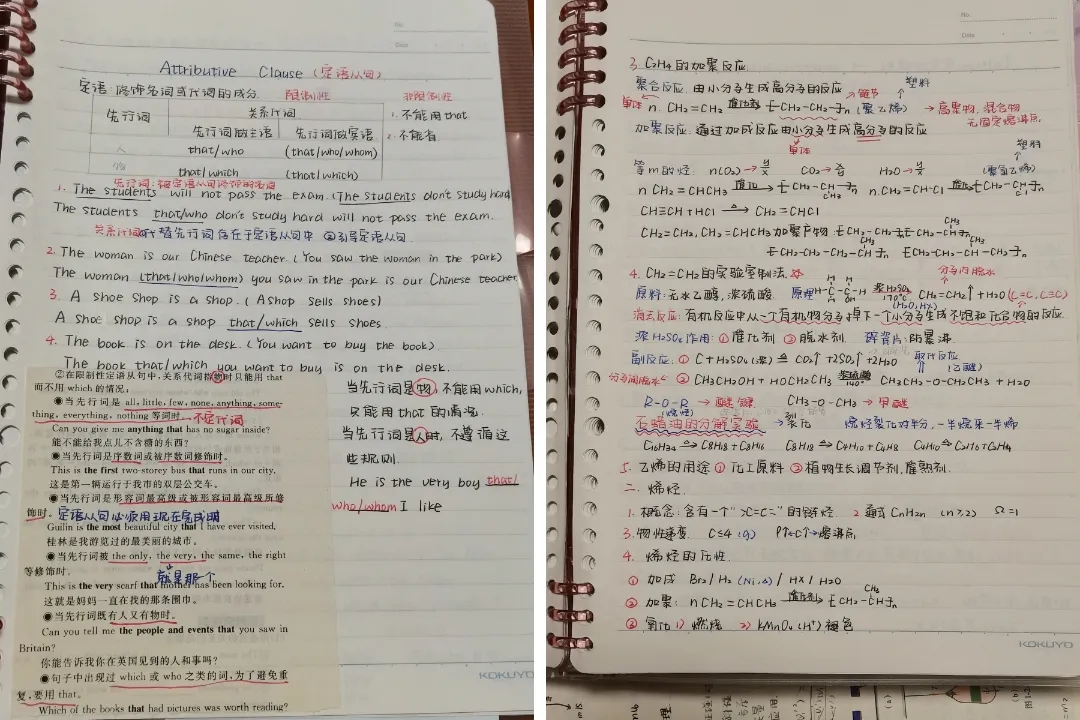 No.
Date
Attributive Clause (定语从句)
定语:修饰名词或代词的成分. 限制性 非限制性
先行词 关系代词
先行词做主语 先行词做宾语
人 that/who (that/who/whom)
物 that/which (that/which)
1. 不能用that
2. 不能省
先行词:被定语从句修饰的名词
1. The students will not pass the exam. (The students don't study hard
The students that/who don't study hard will not pass the exam.
关系代词 ①代替先行词存在于定语从句中 ②引导定语从句.
2. The woman is our Chinese teacher. (You saw the woman in the park)
The woman (that/who/whom) you saw in the park is our Chinese teacher
3. A shoe shop is a shop. (A shop sells shoes)
A shoe shop is a shop that/which sells shoes.
4. The book is on the desk. (You want to buy the book)
The book that/which you want to buy is on the desk.
②在限制性定语从句中,关系代词指物时只能用 that
而不用 which 的情况:
◉当先行词是 all, little, few, none, anything, some-
thing, everything, nothing 等词时. 不定代词
Can you give me anything that has no sugar inside?
能不能给我点儿不含糖的东西?
◉当先行词是序数词或被序数词修饰时。
This is the first two-storey bus that runs in our city.
这是第一辆运行于我市的双层公交车。
◉当先行词是形容词最高级或被形容词最高级所修
饰时。定语从句必须用现在完成时
Guilin is the most beautiful city that I have ever visited.
桂林是我游览过的最美丽的城市。
◉当先行词被 the only, the very, the same, the right
等修饰时. 就是那个
This is the very scarf that mother has been looking for.
这就是妈妈一直在找的那条围巾。
◉当先行词既有人又有物时。
Can you tell me the people and events that you saw in
Britain?
你能告诉我你在英国见到的人和事吗?
◉句子中出现过 which 或 who 之类的词,为了避免重
复,要用 that。
Which of the books that had pictures was worth reading?
当先行词是物,不能用which,
只能用 that 的情况.
当先行词是人时,不遵循这
些规则.
He is the very boy that/
who/whom I like
KOKUYO
No.
Date
3. C2H4 的加聚反应
聚合反应:由小分子生成高分子的反应 链节 塑料
单体 n CH2=CH2 催化剂 [CH2-CH2]n (聚乙烯) → 高聚物,混合物
无固定熔沸点
加聚反应:通过加成反应由小分子生成高分子的反应
单体
塑料
(聚氯乙烯)
n CH2=CHCH3 催化剂 [CH2-CH]n n CH2=CHCl 催化剂 [CH2-CH]n
CH3 Cl
CH≡CH+HCl △ CH2=CHCl
CH2=CH2, CH2=CHCH3 加聚产物
4. CH2=CH2 的实验室制法 ☆ 分子内脱水
原料:无水乙醇,浓硫酸. 原理 浓H2SO4 170℃ CH2=CH2↑+H2O (C=C, C≡C)
(H2O, HX)
消去反应:有机反应中从一个有机物分子掉下一个小分子生成不饱和化合物的反应.
浓H2SO4作用:①催化剂 ②脱水剂 碎瓷片:防暴沸
副反应:① C+H2SO4(浓) △ CO2↑+2SO2↑+2H2O 取代反应
(乙醚)
分子间脱水 ② CH3CH2OH + HOCH2CH3 浓硫酸 140° CH3CH2-O-CH2CH3 + H2O
R-O-R → 醚键 CH3-O-CH3 → 甲醚
(烃基)
石蜡油的分解实验 → 裂化 烷烃裂化对半分,一半烷来一半烯
C16H34 → C8H18+C8H16 C8H18 → C4H10+C4H8 C4H10 → C2H6+C2H4
5. 乙烯的用途 ① 化工原料 ② 植物生长调节剂,催熟剂.
二、烯烃.
1. 概念:含有一个“>C=C<”的链烃 2. 通式 CnH2n (n≥2) Ω=1
3. 物性递变. C≤4 (g) ρ↑←C↑→熔沸点
4. 烯烃的化性.
① 加成 Br2/H2 (Ni,△) / HX / H2O
② 加聚: n CH2=CHCH3 催化剂 [CH2-CH]n
CH3
③ 氧化 1) 燃烧 2) KMnO4 (H+) 褪色
KOKUYO